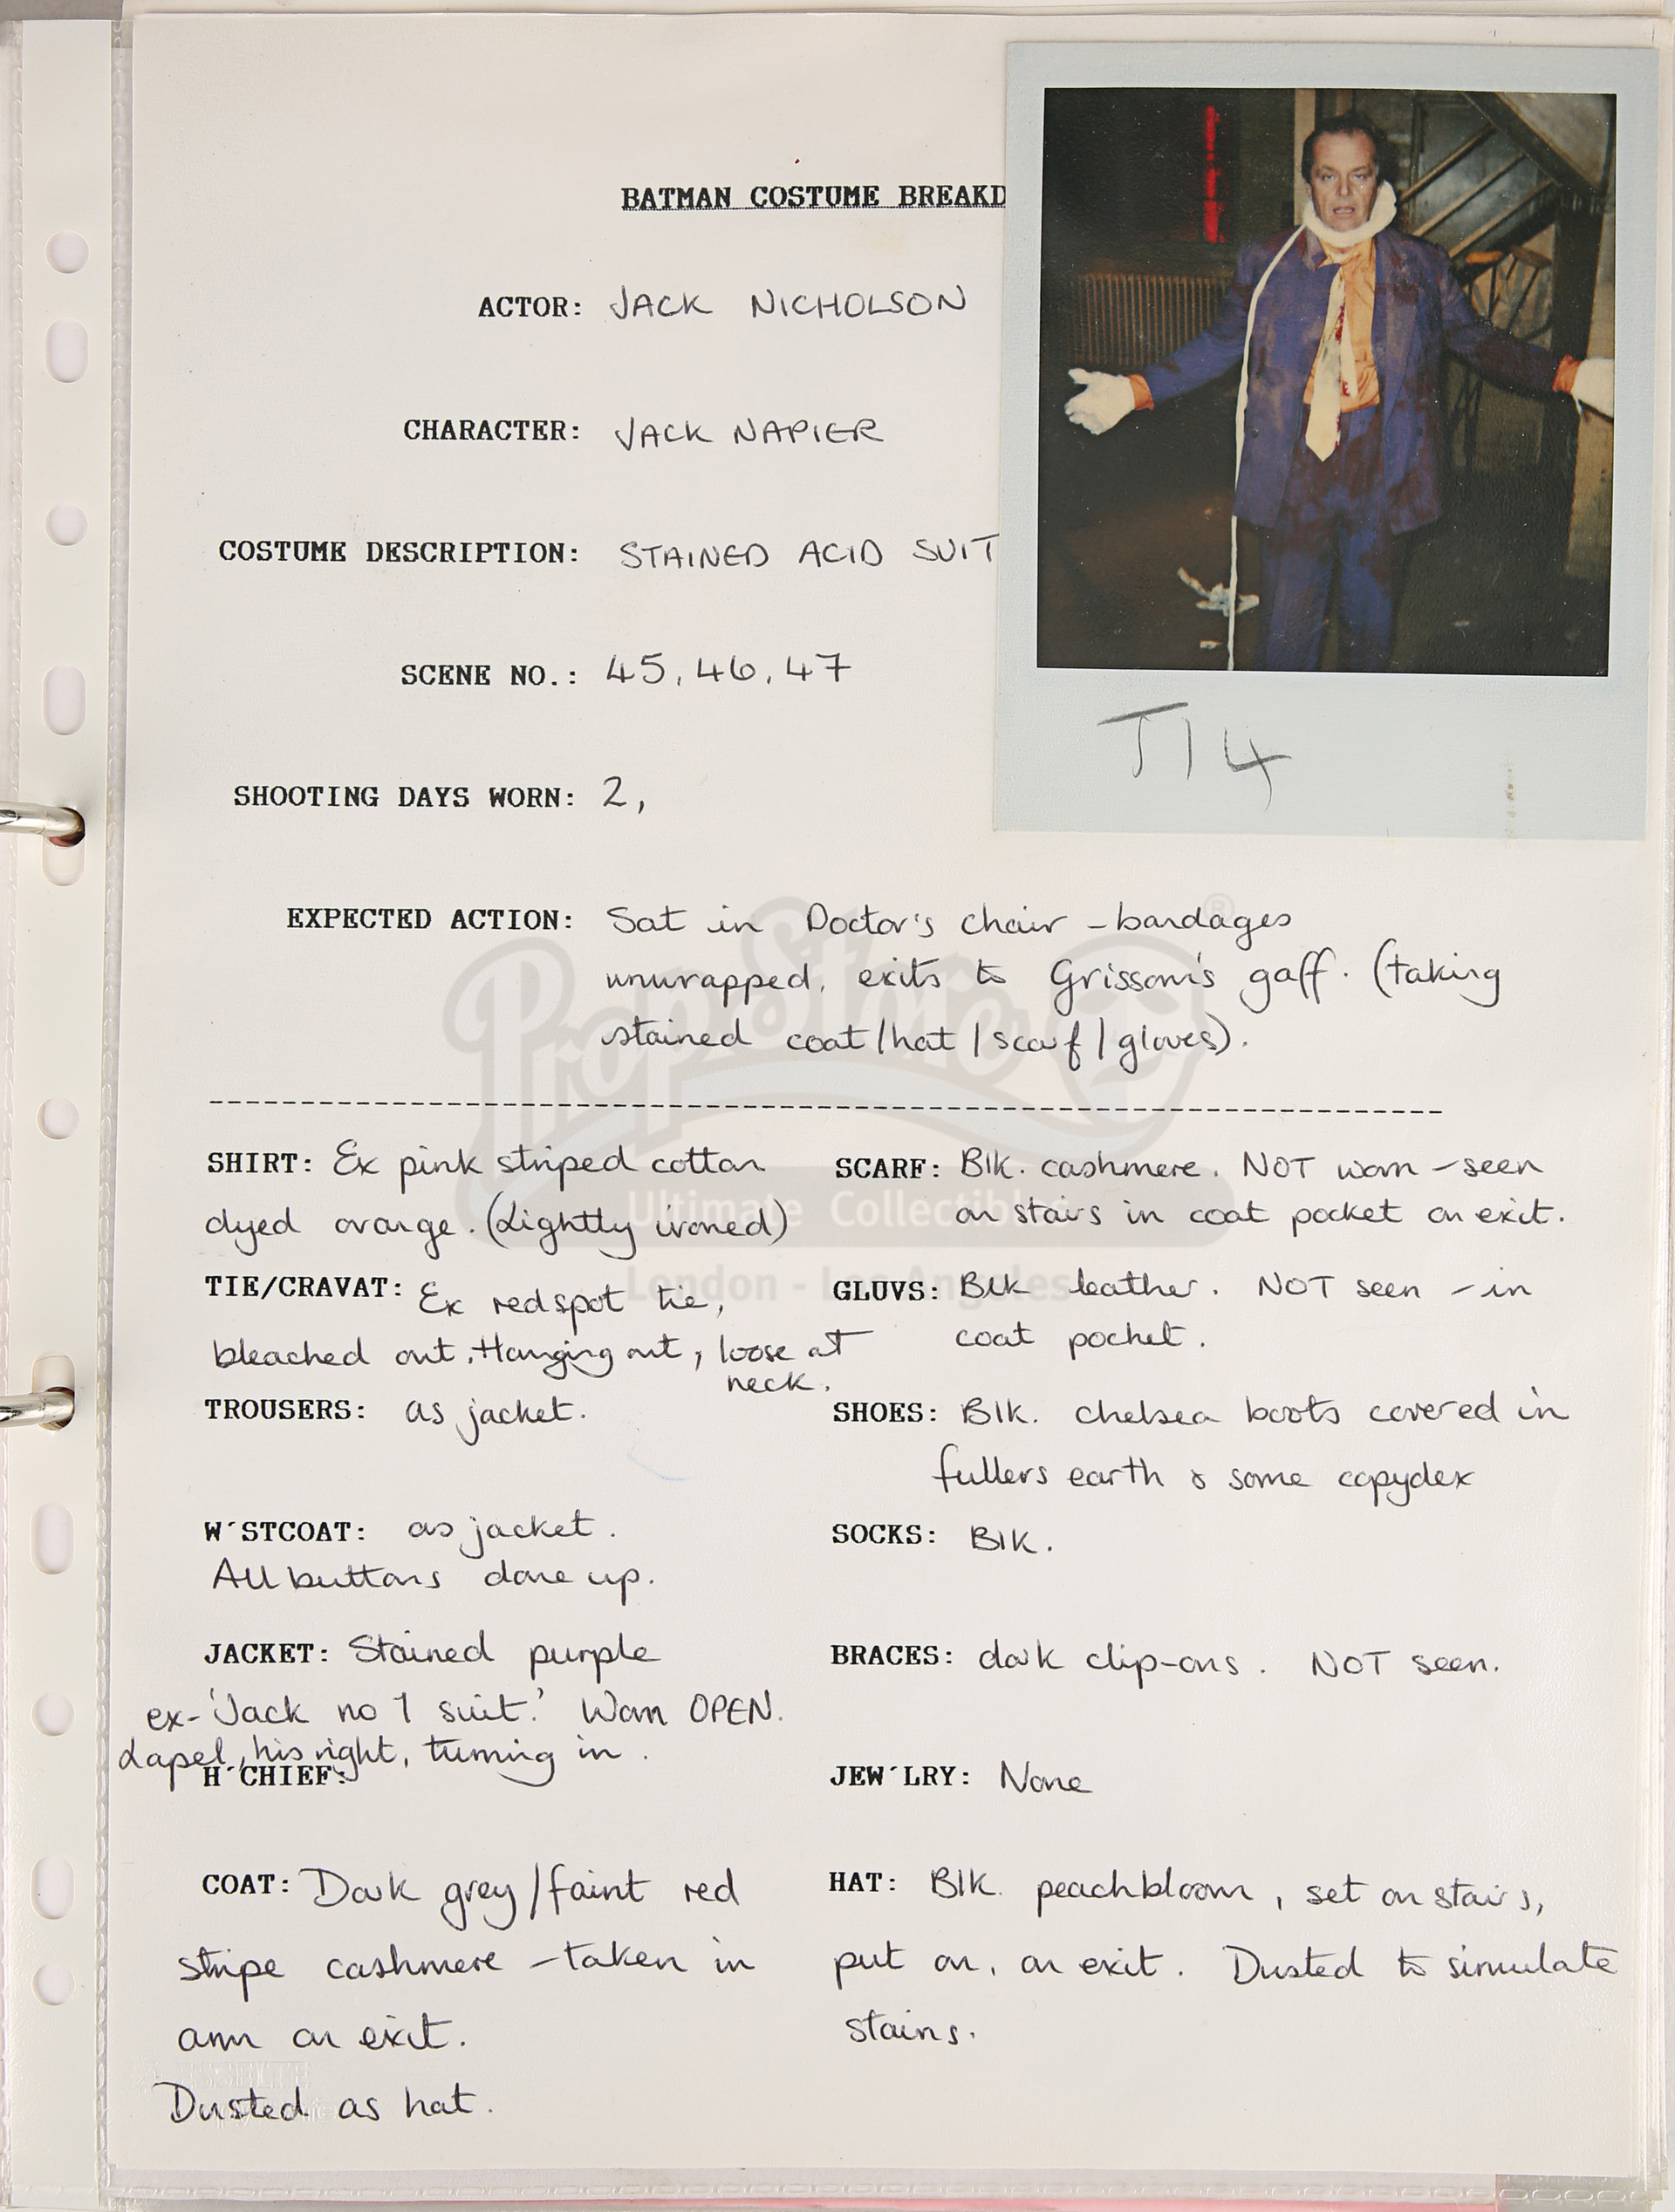 BATMAN COSTUME BREAKD
ACTOR: JACK NICHOLSON
CHARACTER: JACK NAPIER
COSTUME DESCRIPTION: STAINED ACID SUIT
SCENE NO.: 45, 46, 47
SHOOTING DAYS WORN: 2,
J14
EXPECTED ACTION: Sat in Doctor's chair - bandages
unwrapped, exits to Grissom's gaff. (taking
stained coat/hat/scarf/gloves).
PropStore ®
Ultimate Collectibles
London - Los Angeles
SHIRT: Ex pink striped cotton
dyed orange. (Lightly ironed)
TIE/CRAVAT: Ex red spot tie,
bleached out. Hanging out, loose at
neck.
TROUSERS: as jacket.
W'STCOAT: as jacket.
All buttons done up.
JACKET: Stained purple
ex-'Jack no 1 suit.' Worn OPEN.
Lapel, his right, turning in.
H'CHIEF:
COAT: Dark grey/faint red
stripe cashmere - taken in
arm on exit.
Dusted as hat.
SCARF: Blk. cashmere. NOT worn - seen
on stairs in coat pocket on exit.
GLUVS: Blk leather. NOT seen - in
coat pocket.
SHOES: Blk. chelsea boots covered in
fullers earth & some copydex
SOCKS: Blk.
BRACES: dark clip-ons. NOT seen.
JEW'LRY: None
HAT: Blk. peachbloom, set on stairs,
put on, on exit. Dusted to simulate
stains.